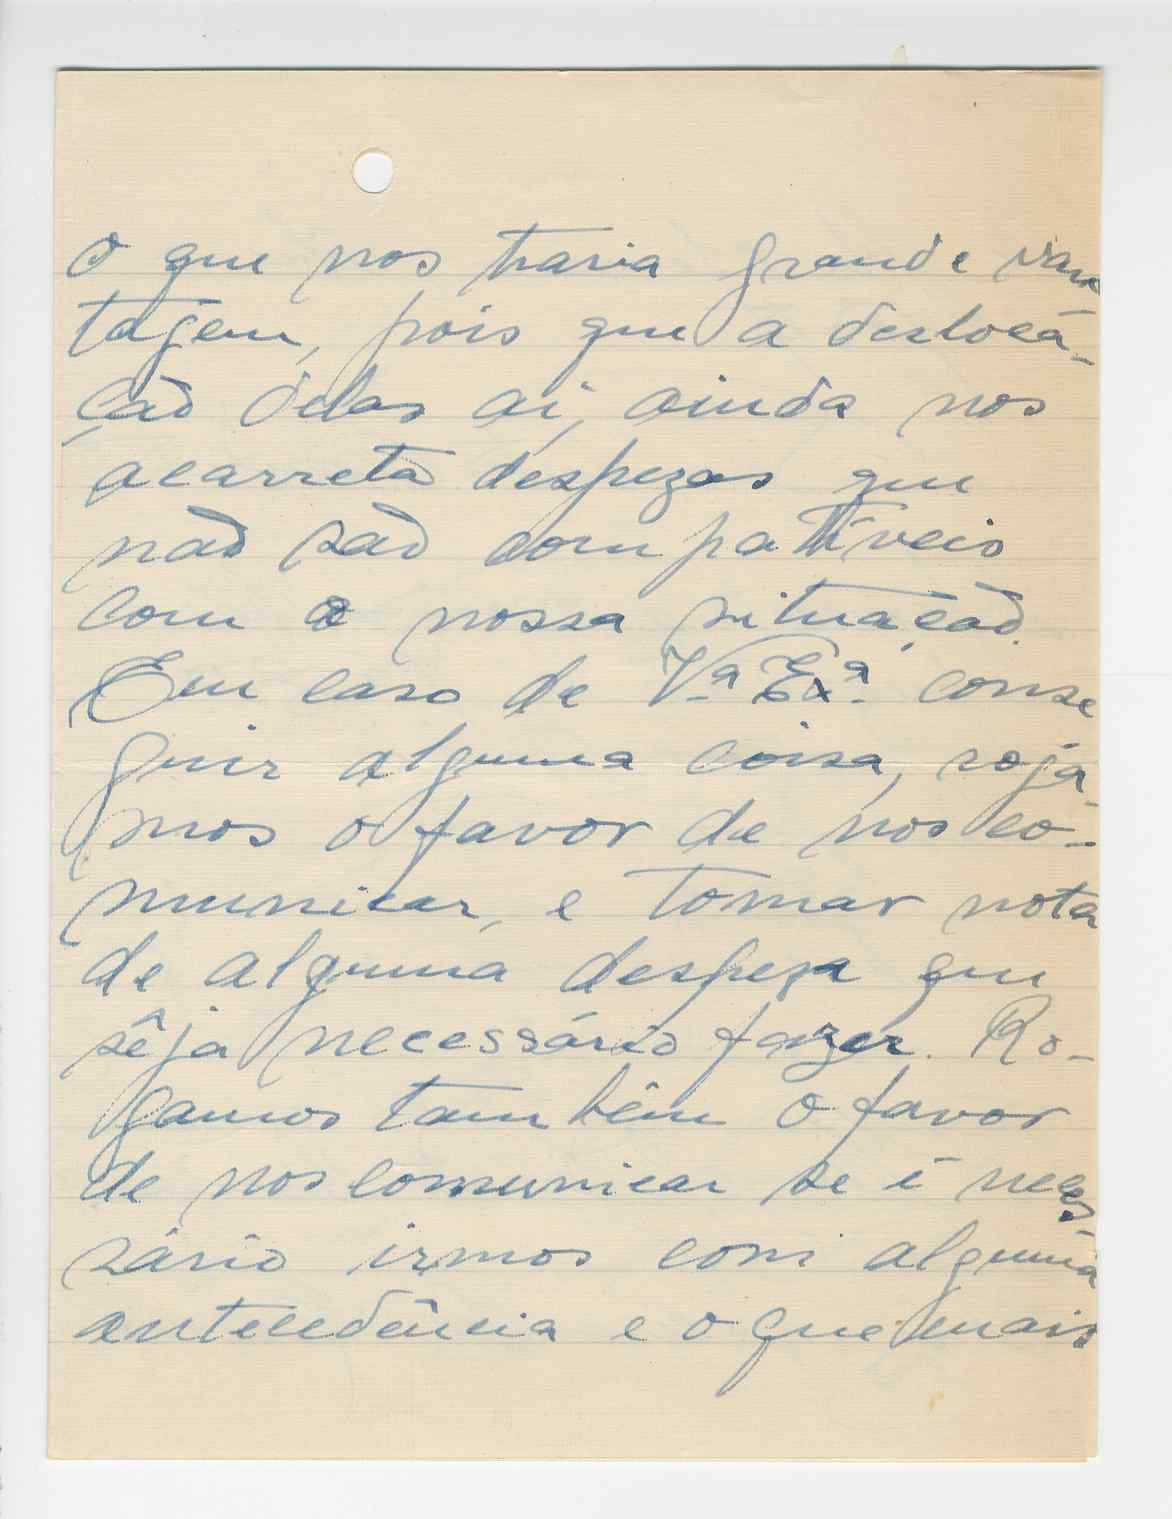 o que nos traria grande van
tágem, pois que a desloca-
ção delas aí, ainda nos
acarreta despezas que
não são compatíveis
com a nossa situação.
Em caso de Vª. Exª. conse
guir alguma coisa, rogá-
mos o favor de nos co-
municar, e tomar nota
de alguma despeza que
sêja necessário fazer. Ro-
gamos tambêm o favor
de nos comunicar se é neces
sário irmos com alguma
antecedência e o que mais